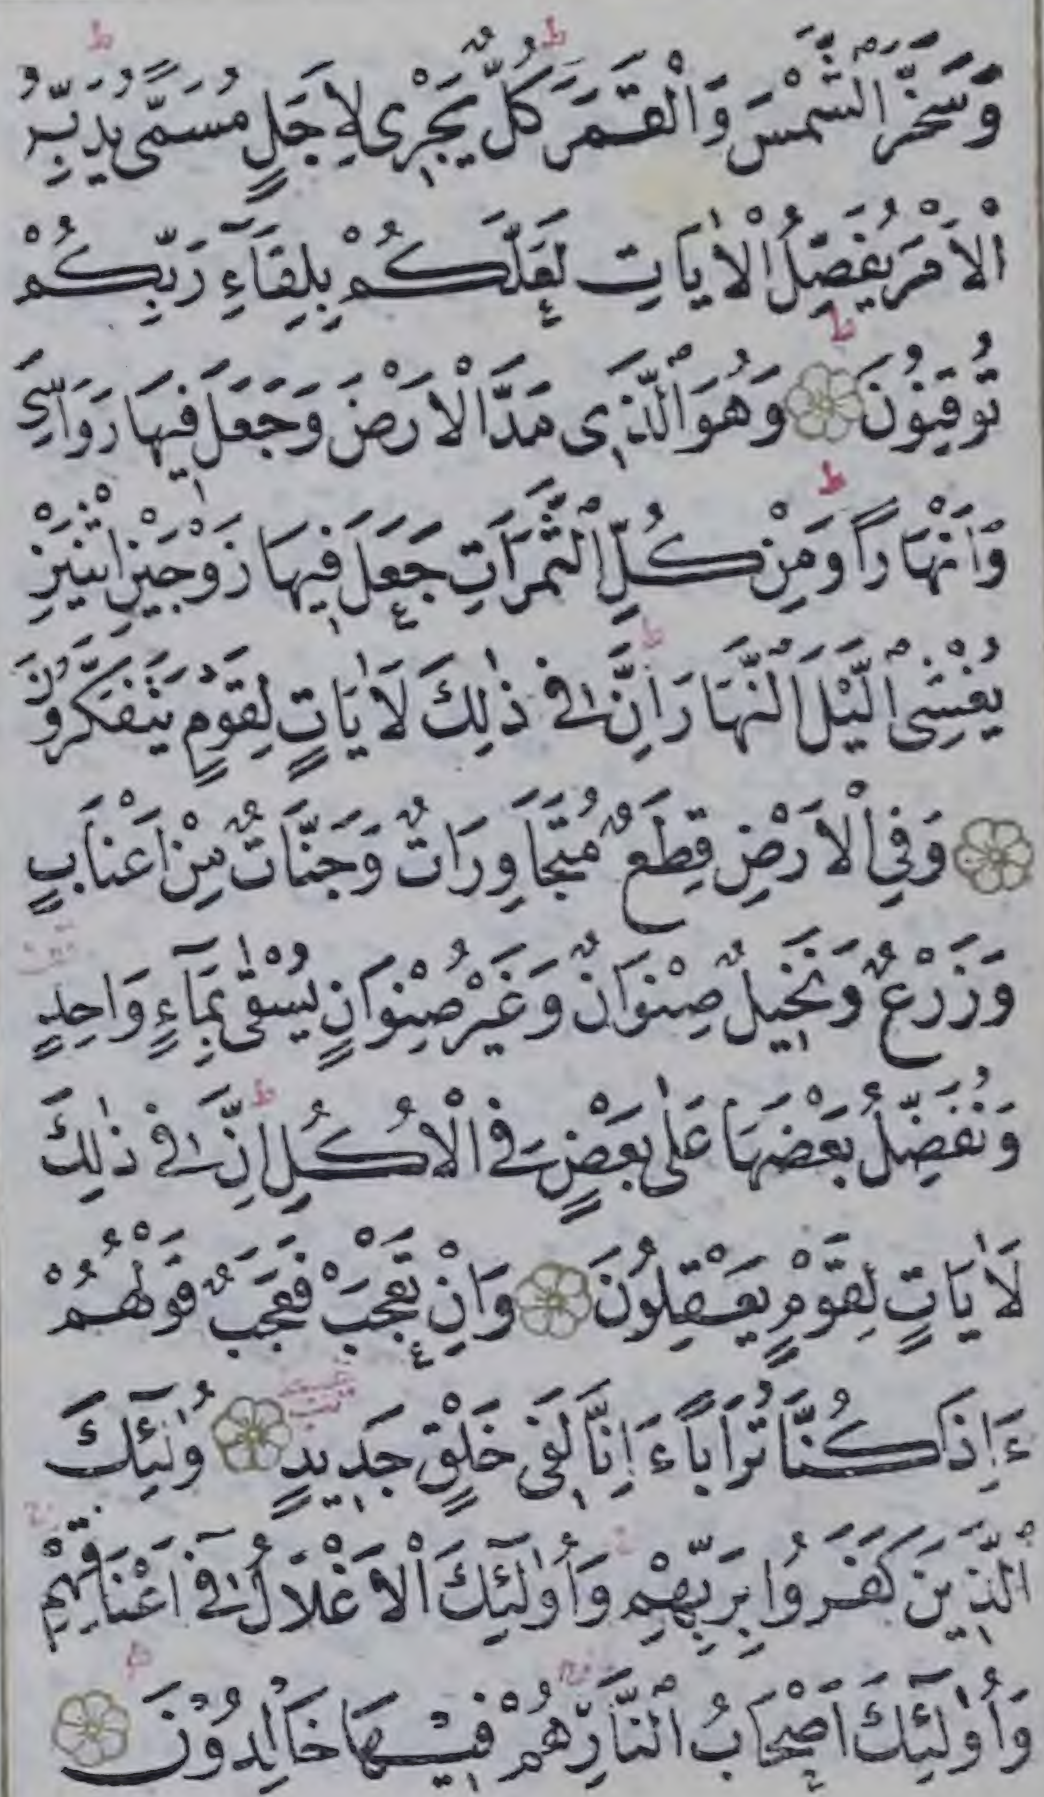 وَسَخَّرَ الشَّمْسَ وَالْقَمَرَ كُلٌّ يَجْرِى لِاَجَلٍ مُسَمًّى يُدَبِّرُ
الْاَمْرَ يُفَصِّلُ الْاٰيَاتِ لَعَلَّكُمْ بِلِقَآءِ رَبِّكُمْ
تُوقِنُونَ وَهُوَ الَّذِى مَدَّ الْاَرْضَ وَجَعَلَ فِيهَا رَوَاسِىَ
وَاَنْهَارًا وَمِنْ كُلِّ الثَّمَرَاتِ جَعَلَ فِيهَا زَوْجَيْنِ اثْنَيْنِ
يُغْشِى الَّيْلَ النَّهَارَ اِنَّ فِى ذٰلِكَ لَاٰيَاتٍ لِقَوْمٍ يَتَفَكَّرُونَ
وَفِى الْاَرْضِ قِطَعٌ مُتَجَاوِرَاتٌ وَجَنَّاتٌ مِنْ اَعْنَابٍ
وَزَرْعٌ وَنَخِيلٌ صِنْوَانٌ وَغَيْرُ صِنْوَانٍ يُسْقٰى بِمَآءٍ وَاحِدٍ
وَنُفَضِّلُ بَعْضَهَا عَلٰى بَعْضٍ فِى الْاُكُلِ اِنَّ فِى ذٰلِكَ
لَاٰيَاتٍ لِقَوْمٍ يَعْقِلُونَ وَاِنْ تَعْجَبْ فَعَجَبٌ قَوْلُهُمْ
ءَاِذَا كُنَّا تُرَابًا ءَاِنَّا لَفِى خَلْقٍ جَدِيدٍ وُلٰٓئِكَ
الَّذِينَ كَفَرُوا بِرَبِّهِمْ وَاُوٰلٰٓئِكَ الْاَغْلَالُ فِٓى اَعْنَاقِهِمْ
وَاُوٰلٰٓئِكَ اَصْحَابُ النَّارِ هُمْ فِيهَا خَالِدُونَ